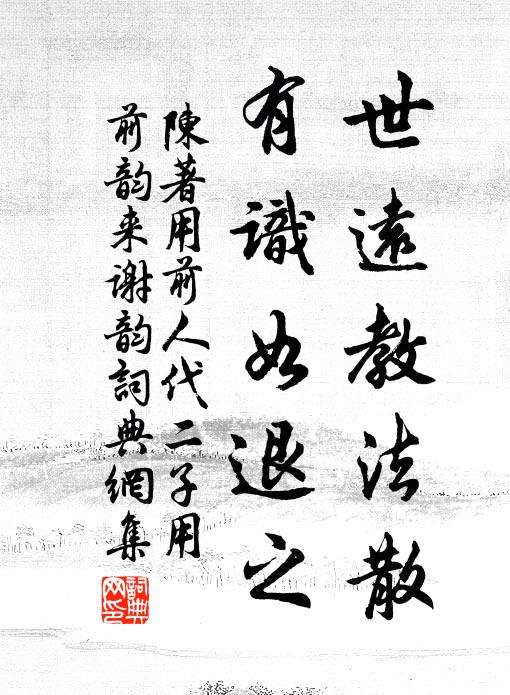 世遠教法散
有識如退之
陳著用前人代二子用
前韵来谢韵詞典網集
詞典